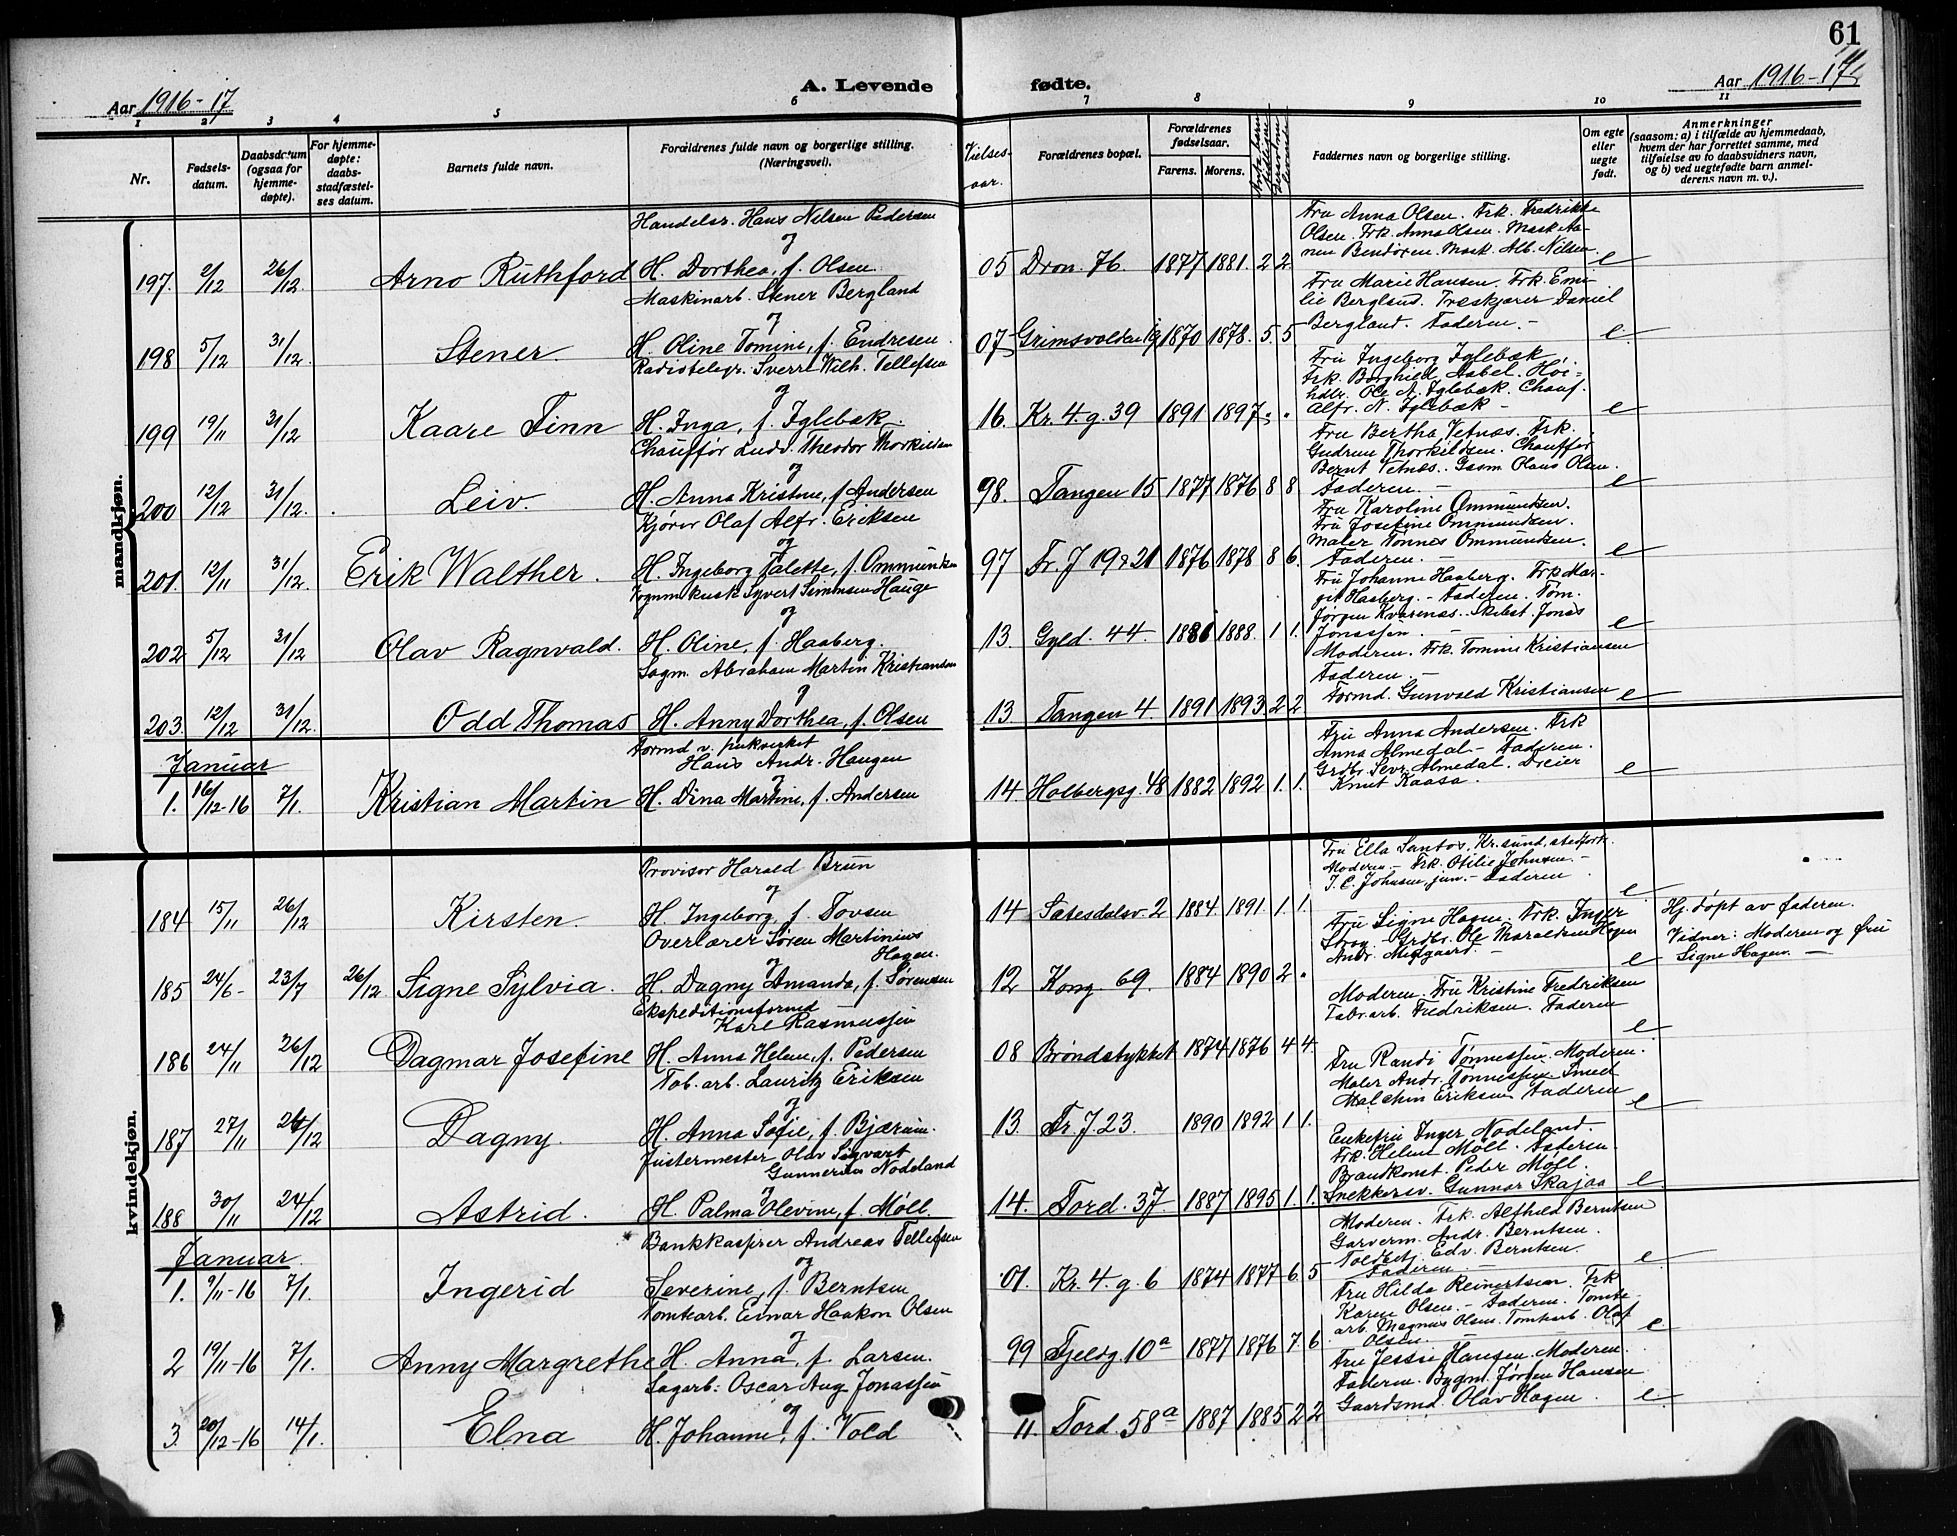 61
A. Levende fødte.
Aar 1916-17
Aar 1916-17
1 2 3 4 5 6 7 8 9 10 11
Nr.
Fødsels-
datum.
Daabsdatum
(ogsaa for
hjemme-
døpte).
For hjemme-
døpte:
daabs-
stadfæstel-
ses datum.
Barnets fulde navn.
Forældrenes fulde navn og borgerlige stilling.
(Næringsvei).
Vielses-
aar.
Forældrenes bopæl.
Forældrenes
fødselsaar.
Farens. Morens.
Faddernes navn og borgerlige stilling.
Om egte
eller
uegte
født.
Anmerkninger
(saasom: a) i tilfælde av hjemmedaab,
hvem der har forrettet samme, med
tilføielse av to daabsvidners navn,
og b) ved uegtefødte barn anmel-
derens navn m. v.).
mandkjøn.
197. 2/12 26/12 Arno Ruthford
Handelsr. Hans Nilsen Pedersen
og
H. Dorthea, f. Olsen.
05 Dron. 76. 1877 1881. 2 2.
Fru Anna Olsen. Frk. Fredrikke
Olsen. Frk. Anna Olsen.
Mask. Alb. Nilsen. e
198 5/12 31/12. Stener
Maskinarb. Stener Bergland
og
H. Oline Tomine, f. Endresen.
07 1870 1878. 5 5
Fru Marie Hansen. Frk. Emi-
lie Bergland. Træskjærer Daniel
Bergland. Faderen. - e
199 19/11 31/12 Kaare Finn
Radiotelegr. Sverre Wilh. Tellefsen
og
H. Inga, f. Iglebæk.
16. Kr. 4 g. 39 1891 1897
Fru Ingeborg Iglebæk.
Frk. Borghild Aabel. Høi-
hdlr. Ole N. Iglebæk. Chauf.
Alfr. N. Iglebæk - e
200 12/12 31/12. Leiv.
Chauffør Ludv. Theodor Thorkildsen
og
H. Anna Kristine, f. Andersen
98. Tangen 15 1877 1876 8 8
Fru Bertha Vetnæs. Frk.
Gudrun Thorkildsen. Chauffør
Bernt Vetnæs. Gaam Olaus Olsen.
Faderen. - e
201. 12/11 31/12. Erik Walther.
Kjører Olaf Alfr. Eriksen
og
H. Ingeborg Talette, f. Ommundsen
97 Fr. J 19 & 21 1876 1878 8 6.
Fru Karoline Ommundsen.
Fru Josefine Ommundsen.
Maler Tønnes Ommundsen.
Faderen. - e
202 5/12 31/12 Olav Ragnvald.
Vognm. kusk Syvert Simonsen Hauge
og
H. Oline, f. Haaberg.
13. Gyld. 44. 1888. 1 1.
Fru Johanne Haaberg. Frk. Mar-
git Haaberg. - Faderen. Tøm.
Jørgen Kvarenæs. Skibst. Jonas
Jonassen. - e
203. 12/12 31/12. Odd Thomas
Sagm. Abraham Martin Kristiansen
og
H. Anny Dorthea, f. Olsen
13 Tangen 4. 1891 1893. 2 2.
Moderen. Frk. Tomine Kristiansen
Faderen. -
Formd. Gunvald Kristiansen e
Januar
1. 16/12-16 7/1. Kristian Martin
Formd v. pukverket
Hans Andr. Haugen
og
H. Dina Martine, f. Andersen
14. Holbergsg. 48 1882 1892 1. 1.
Fru Anna Andersen. Frk
Anna Almedal - Faderen.
Grdbr. Sevr. Almedal. Dreier
Knut Kaasa. e
kvindekjøn.
184 15/11 26/12 Kirsten
Provisor Harald Brun
og
H. Ingeborg, f. Tovsen
14 Sætesdalsv. 2 1884 1891. 1. 1.
Fru Ella Santos, Kr.sund, stedfort.
Moderen. - Frk. Otilie Johnsen. -
J. C. Johnsen, jun. - Faderen e
185 24/6- 23/7 26/12 Signe Sylvia.
Overlærer Søren Martinius
Hagen.
og
H. Dagny Amanda, f. Sørensen
12 Kong. 69. 1884 1890 2 •
Fru Signe Hagen. Frk. Inger
- Grdbr. Ole Tharaldsen Hagen
Andr. Midgaard. - e
Hj. døpt av faderen.
Vidner: Moderen og fru
Signe Hagen. -
186 24/11 26/12 Dagmar Josefine
Ekspeditionsformd
Karl Rasmussen
H. Anna Helene, f. Pedersen
08 Brøndstykket 1874 1876 4 4.
Moderen. Fru Kristine Fredriksen
Fabr.arb. Fredriksen. Faderen e
187 27/11 26/12 Dagny.
Tob. arb. Lauritz Eriksen
og
H. Anna Sofie, f. Bjærum.
13. Fr. J. 23. 1890 1892 1 1.
Fru Randi Tønnessen. Moderen.
Maler Andr. Tønnessen. Smed
Malchin Eriksen. Faderen e
188 30/11 24/12 Astrid.
Justermester Olav Sigvart
Gunnerius Nodeland
og
H. Palma Olevine, f. Møll.
14. Tord. 37 1887 1895 1. 1.
Enkefru Inger Nodeland.
Frk. Helene Møll. Faderen.
Brandkonst. Peder Møll.
Snekkersv. Gunnar Skajaa e
Januar.
1. 9/11-16 7/1. Ingerid
Bankkasserer Andreas Tellefsen
og
Severine, f. Berntsen
01. Kr. 4 g. 6 1874 1877 6. 5
Moderen. Frk. Alfhild Berntsen
Garverm. Andr. Berntsen.
Toldbetj. Edv. Berntsen.
Faderen - e
2 19/11-16 7/1. Anny Margrethe
Tomtearb. Einar Haakon Olsen
og
H. Anna, f. Larsen.
99 Fjeldg. 10a 1877 1876 7 6
Fru Hilda Reinertsen. Frk
Karen Olsen. - Faderen. Tomte-
arb. Magnus Olsen. Tomtearb. Olaf
Olsen. - e
3. 20/12-16 14/1. Elna
Sagarb. Oscar Aug. Jonassen
og
H. Johanne, f. Vold
11. Tord. 58a 1887 1885 2 2
Fru Jessie Hansen. Moderen.
Faderen. Bygm. Jørgen Hansen
Gaardsmd. Olav Hagen. e.